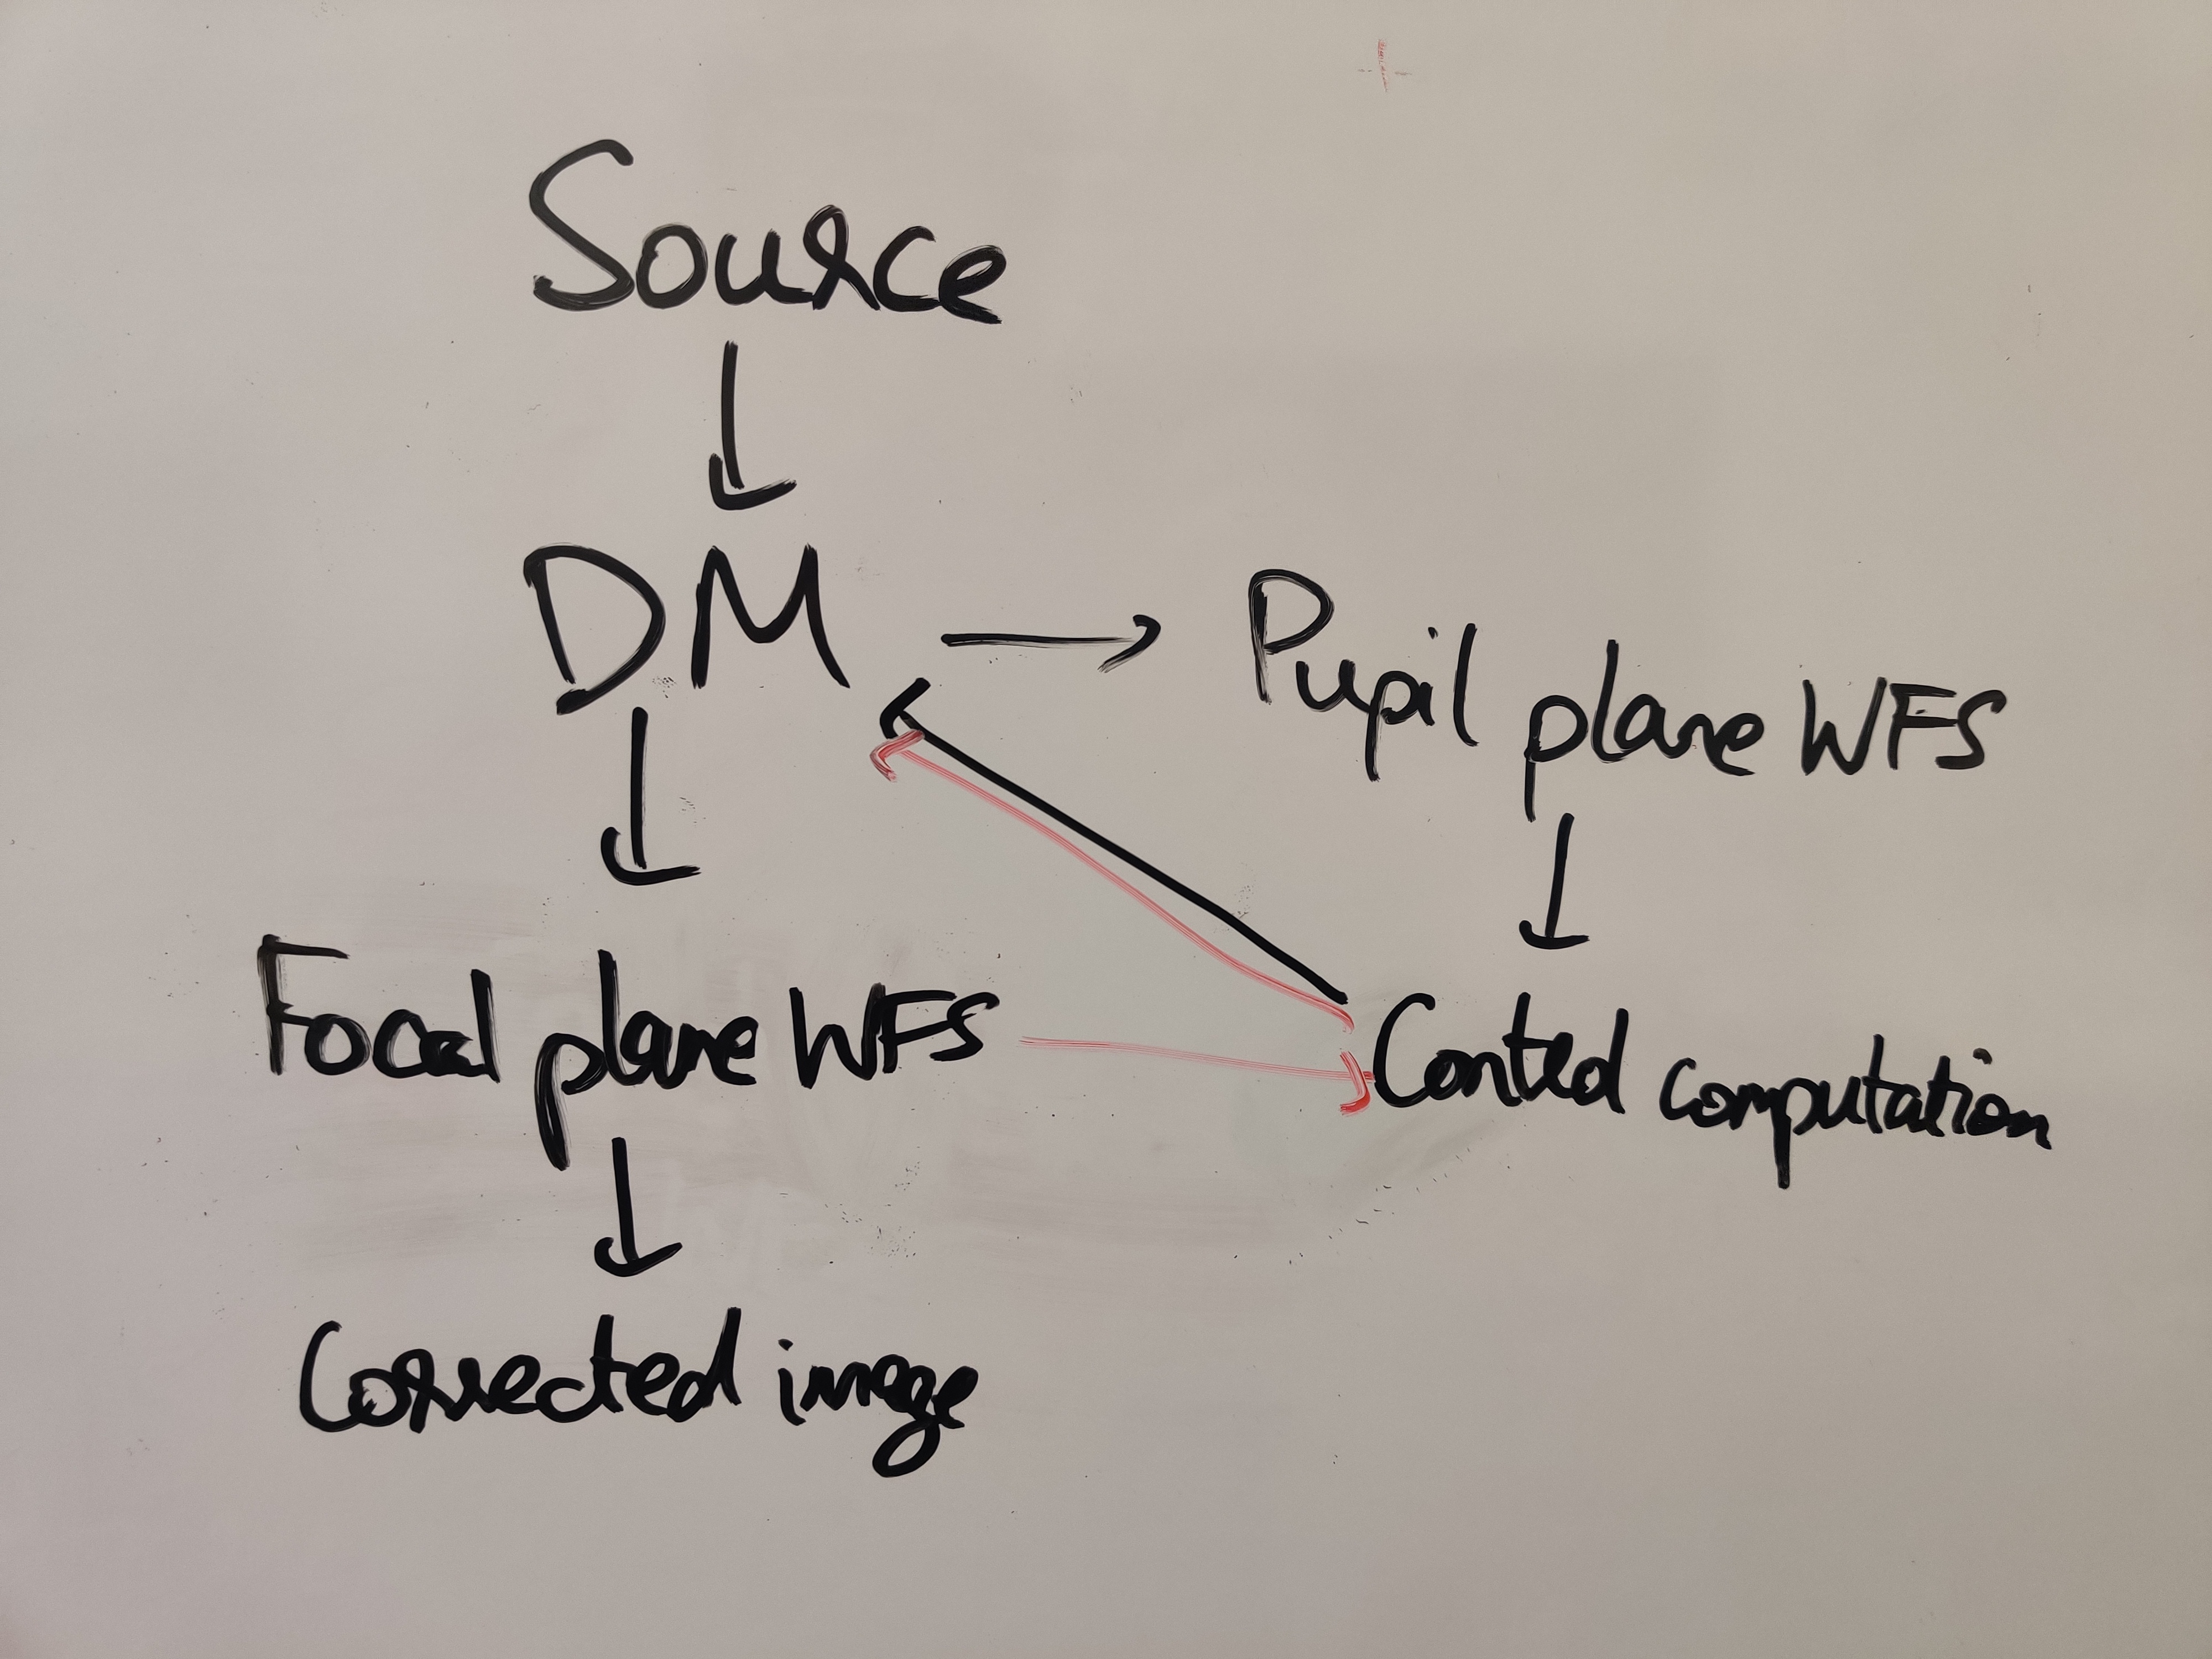 Source
DM
Pupil plane WFS
Focal plane WFS
Control computation
Corrected image